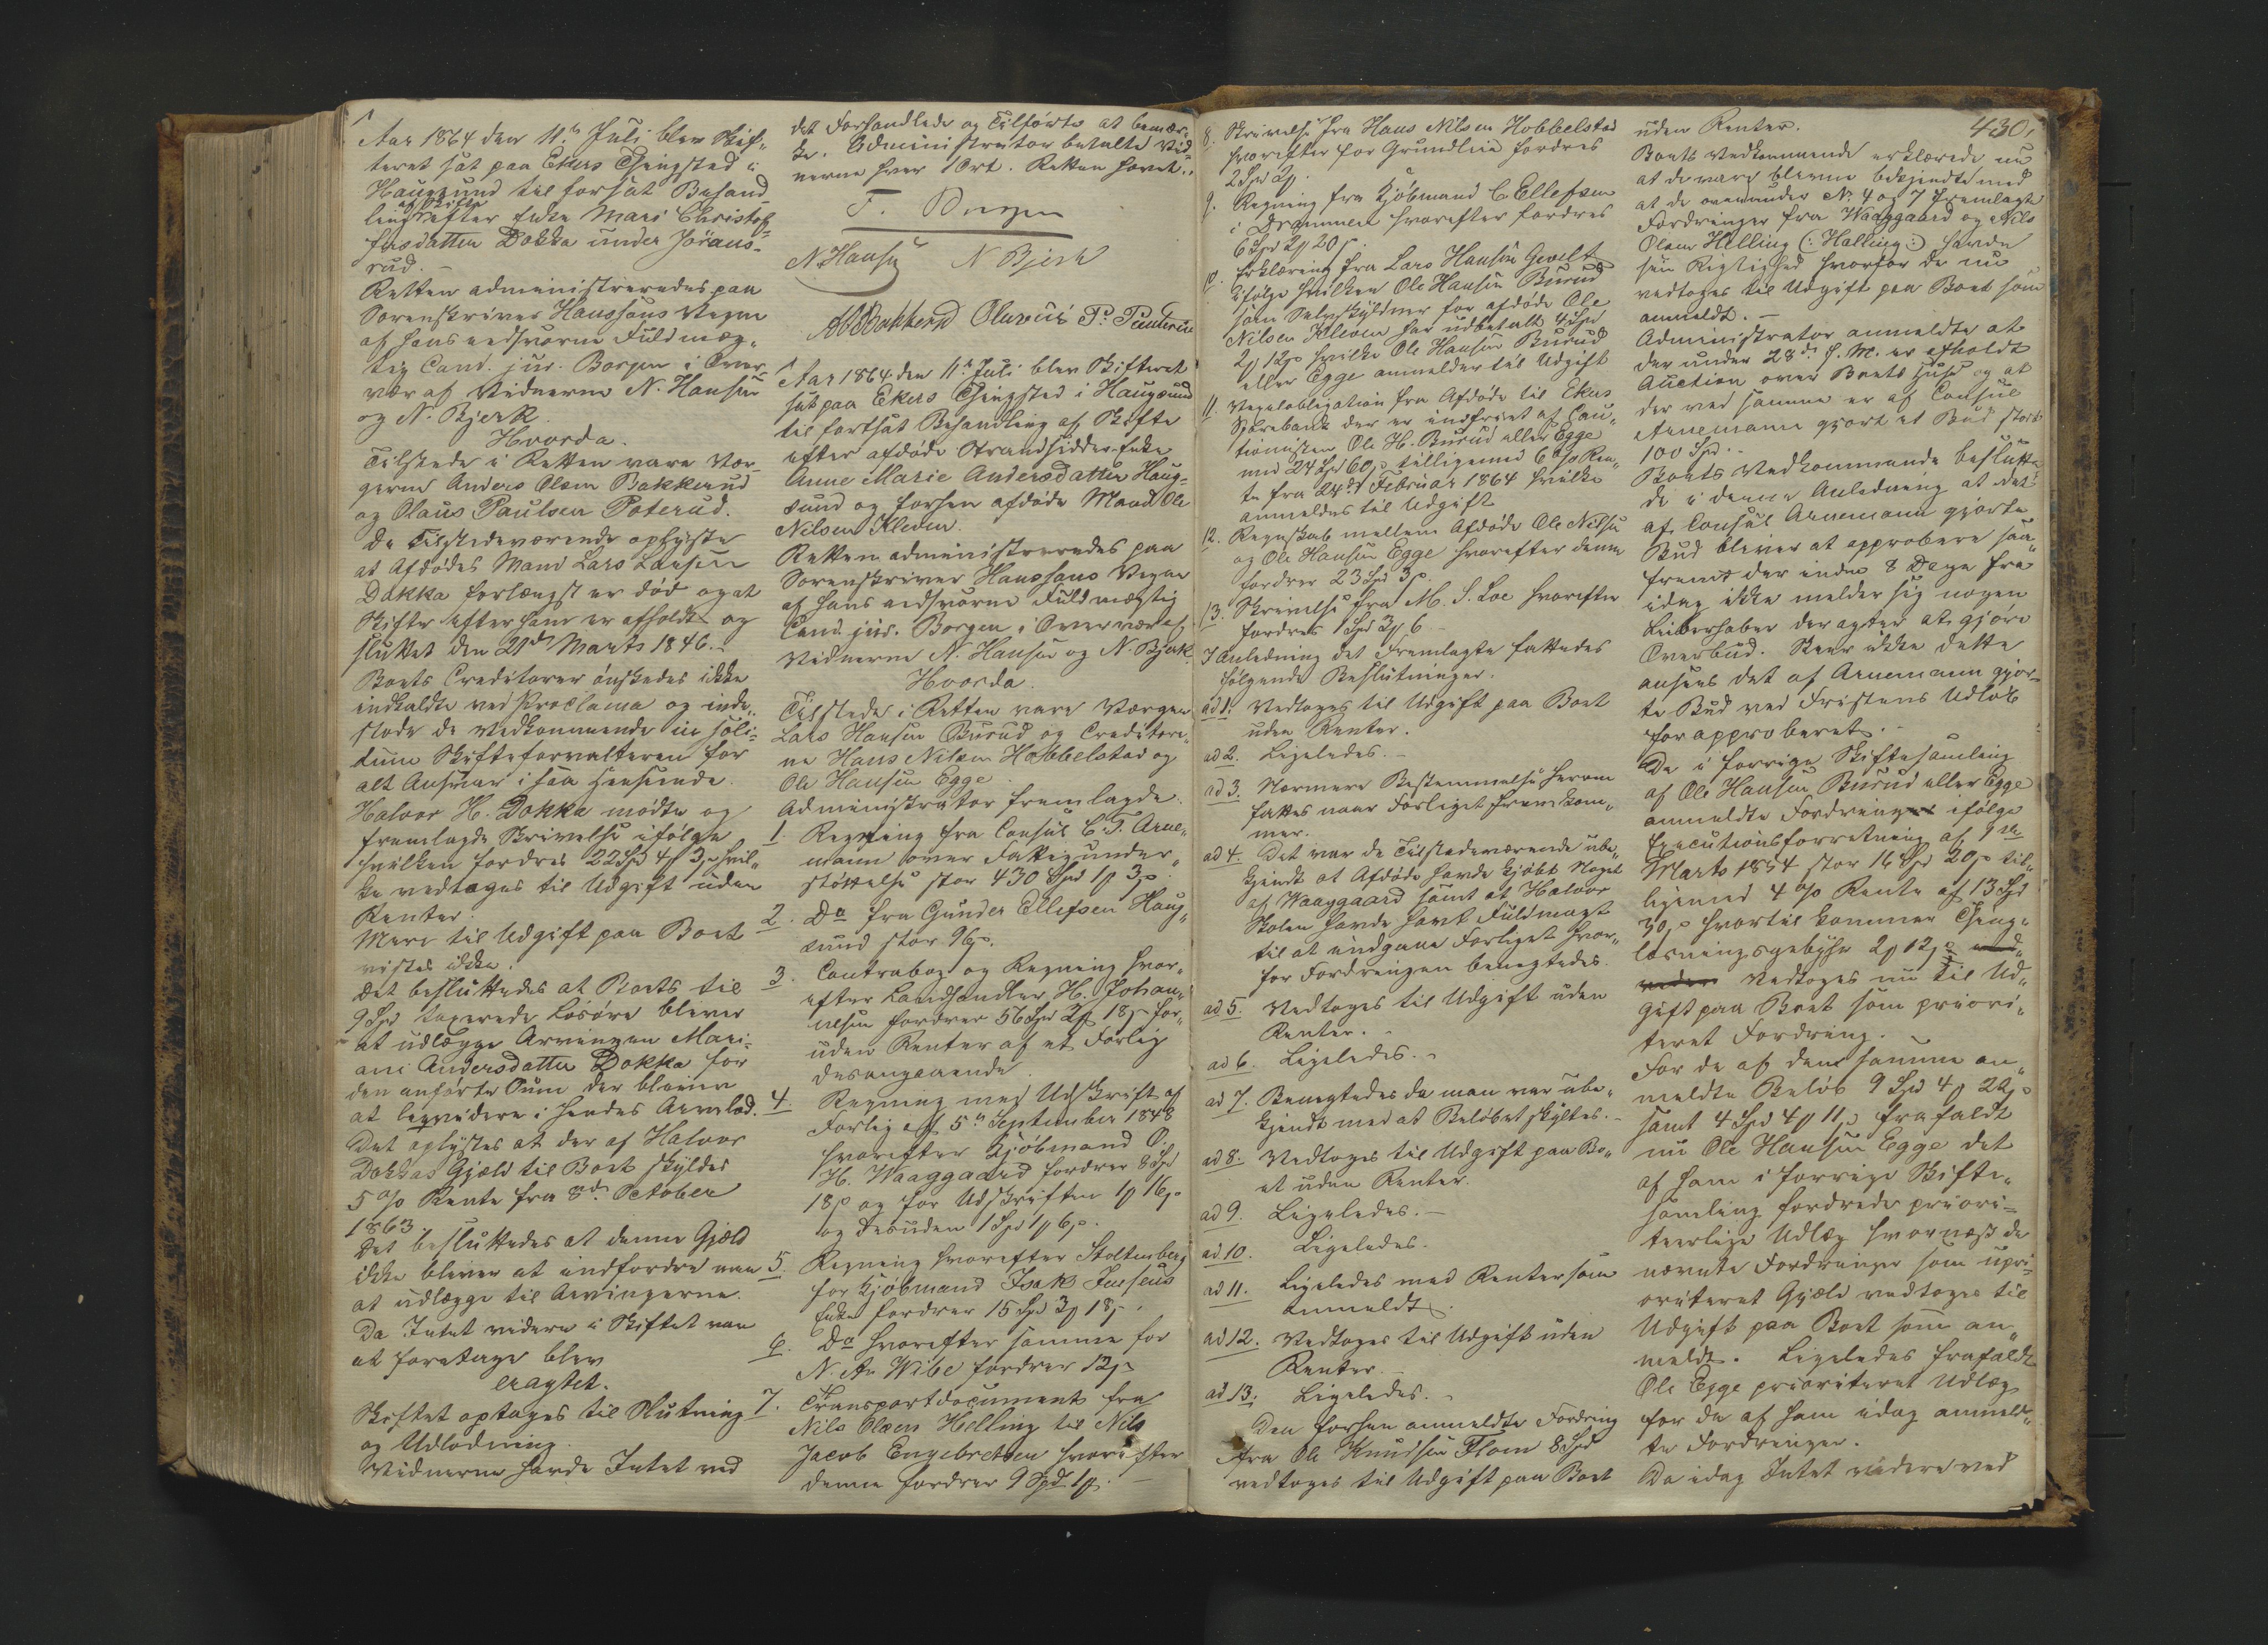 Aar 1864 den 11te Juli blev Skif-
teret sat paa Ekers Thingsted i
Haugsund til forsat Behand-
ling af Skifte efter Enke Mari Christof-
fersdatter Dokka under Jörans-
rud. -
Retten administreredes paa
Sorenskriver Hanssons Vegne
af hans eedsvorne Fuldmæg-
tig Cand. jur. Borgen i Over-
vær af Vidnerne N. Hansen
og N. Bjerk.
Hvorda.
Tilstede i Retten vare Vær-
gerne Anders Olsen Bakkerud
og Olaus Paulsen Poterud.
De Tilstedeværende oplyste
at Afdödes Mand Lars Larsen
Dokka forlængst er död og at
Skifte efter ham er afholdt og
sluttet den 21de Marts 1846. -
Boets Creditorer önskedes ikke
indkaldte ved Proclama og inde-
stode de Vedkommende in soli-
dum Skifteforvalteren for
alt Ansvar i saa Henseende.
Halvor H. Dokka mödte og
fremlagde Skrivelse ifölge
hvilken fordres 22 Spd 4 ß 3 s hvil-
ke vedtoges til Udgift uden
Renter.
Mere til Udgift paa Boet
vistes ikke.
Det besluttedes at Boets til
9 Spd taxerede Lösöre bliver
at udlægge Arvingen Mari-
ane Andersdatter Dokka for
den anförte Sum der bliver
at liqvidere i hendes Arvelod.
Det oplystes at der af Halvor
Dokkas Gjæld til Boet skyldes
5 % Rente fra 8de October
1863.
Det besluttedes at denne Gjæld
ikke bliver at indfordre men
at udlægge til Arvingerne.
Da Intet videre i Skiftet var
at foretage blev
eragtet.
Skiftet optages til Slutning
og Udlodning.
Vidnerne havde Intet ved
det Forhandlede og Tilförte at bemær-
ke. Administrator betalte Vid-
nerne hver 1 Ort. Retten hævet.
F. Borgen
N. Hansen N Bjerk
Olavus P. Pouterud
Aar 1864 den 11te Juli blev Skifteret
sat paa Ekers Thingsted i Haugsund
til fortsat Behandling af Skifte
efter afdöde Strandsidder-Enke
Anne Marie Andersdatter Haug-
sund og forhen afdöde Mand Ole
Nilsen Kleven.
Retten administreredes paa
Sorenskriver Hanssons Vegne
af hans eedsvorne Fuldmægtig
Cand. jur. Borgen i Overvær af
Vidnerne N. Hansen og N. Bjerk.
Hvorda.
Tilstede i Retten vare Værgen
Lars Hansen Burud og Creditore-
ne Hans Nilsen Hobbelstad og
Ole Hansen Egge.
Administrator fremlagde.
1. Regning fra Consul C. T. Arne-
mann over Fattigunder-
stöttelse stor 430 Spd 1 ß 3 s.
2. Do fra Gunder Ellefsen Haug-
sund stor 96 s.
3. Contrabog og Regning hvor-
efter Landhandler H. Johan-
nesen fordrer 56 Spd 2 ß 18 s for-
uden Renter af et Forlig
desangaaende
4. Regning med Udskrift af
Forlig af 5te September 1848
hvorefter Kjöbmand O.
H. Waaggaard fordrer 8 Spd
18 s og for Udskriften 1 ß 16 s
og desuden 1 Spd 1 ß 6 s.
5. Regning hvorefter Stoltenberg
for Kjöbmand Isak Jensens
Enke fordrer 15 Spd 3 ß 18 s.
6. Do hvorefter samme for
N. A. Wibe fordrer 12 s
7. Transportdocument fra
Nils Olsen Helling til Nils
Jacob Engebretsen hvorefter
denne fordrer 9 Spd 1 ß. -
430.
8. Skrivelse fra Hans Nilsen Hobbelstad
hvorefter for Grundleie fordres
2 Spd 2 ß.
9. Regning fra Kjöbmand C. Ellefsen
i Drammen hvorefter fordres
6 Spd 2 ß 20 s.
10. Erklæring fra Lars Hansen Gevelt
ifölge hvilken Ole Hansen Burud
som Selvskyldner for afdöde Ole
Nilsen Kleven har udbetalt 4 Spd
2 ß 12 s hvilke Ole Hansen Burud
eller Egge anmelder til Udgift
11. Vexelobligation fra Afdöde til Ekers
Sparebank der er indfriet af Cau-
tionisten Ole H. Burud eller Egge
med 24 Spd 60 s tilligemed 6 % Ren-
te fra 24de Februar 1864 hvilke
anmeldes til Udgift
12. Regnskab mellem Afdöde Ole Nilsen
og Ole Hansen Egge hvorefter denne
fordrer 23 Spd 3 s.
13. Skrivelse fra M. S. Loe hvorefter
fordres 1 Spd 3 ß 6
I Anledning det Fremlagte fattedes
fölgende Beslutninger.
ad 1. Vedtoges til Udgift paa Boet
uden Renter.
ad 2. Ligeledes. -
ad 3. Nærmere Bestemmelse herom
fattes naar Forliget fremkom-
mer.
ad 4. Det var de Tilstedeværende ube-
kjendt at Afdöde havde kjöbt Noget
af Waaggaard samt at Halvor
Stolen havde havt Fuldmagt
til at indgaae Forliget hvor-
for Fordringen benegtedes.
ad 5. Vedtoges til Udgift uden
Renter. -
ad 6. Ligeledes. -
ad 7. Benegtedes da man var ube-
kjendt med at Belöbet skyltes. -
ad 8. Vedtoges til Udgift paa Bo-
et uden Renter.
ad 9. Ligeledes. -
ad 10. Ligeledes.
ad 11. Ligeledes med Renter som
anmeldt.
ad 12. Vedtoges til Udgift uden
Renter.
ad 13. Ligeledes. -
Den forhen anmeldte Fordring
fra Ole Knudsen Flom 8 Spd
vedtoges til Udgift paa Boet
uden Renter.
Boets Vedkommende erklærede nu
at de vare blevne bekjendte med
at de ovenunder No 4 og 7 fremlagte
Fordringer fra Waaggaard og Nils
Olsen Helling (: Halling :) havde
sin Rigtighed hvorfor de nu
vedtoges til Udgift paa Boet som
anmeldt. -
Administrator anmeldte at
der under 28de f. M. er afholdt
Auction over Boets Huse og at
der ved samme er af Consul
Arnemann gjort et Bud stort
100 Spd. -
Boets Vedkommende beslutte-
de i denne Anledning at det
af Consul Arnemann gjorte
Bud bliver at approbere saa-
fremt der inden 8 Dage fra
idag ikke melder sig nogen
Liebhaber der agter at gjöre
Overbud. Skeer ikke dette
ansees det af Arnemann gjor-
te Bud ved Fristens Udlöb
for approberet. -
De i forrige Skiftesamling
af Ole Hansen Burud eller Egge
anmeldte Fordring ifölge
Executionsforretning af 9de
Marts 1854 stor 16 Spd 20 s til-
ligemed 4 % Rente af 13 Spd
30 s hvortil kommer Thing-
læsningsgebyhr 2 ß 12 s
vedtoges nu til Ud-
gift paa Boet som priori-
teret Fordring.
For de af den samme an-
meldte Belöb 9 Spd 4 ß 22 s
samt 4 Spd 4 ß 11 s frafaldt
nu Ole Hansen Egge det
af ham i forrige Skifte-
samling fordrede priori-
teerlige Udlæg hvornæst de
nævnte Fordringer som upri-
oriteret Gjæld vedtoges til
Udgift paa Boet som an-
meldt. Ligeledes frafaldt
Ole Egge prioriteret Udlæg
for de af ham idag anmeld-
te Fordringer.
Da idag Intet videre ved